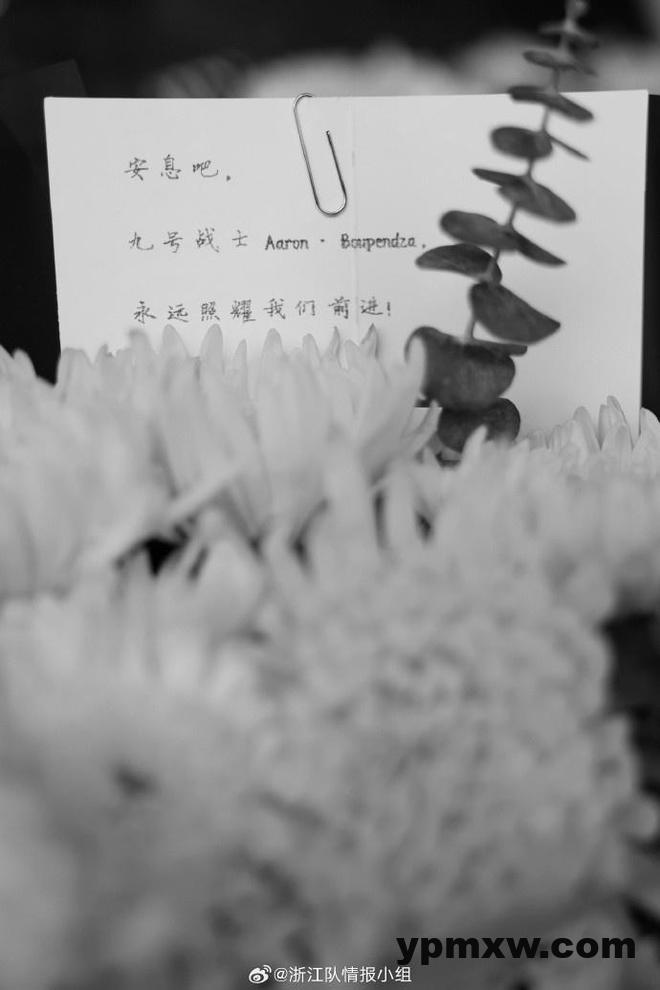 安息吧。
九号战士 Aaron · Boupendza。
永远照耀我们前进!
ypmxw.com
@浙江队情报小组